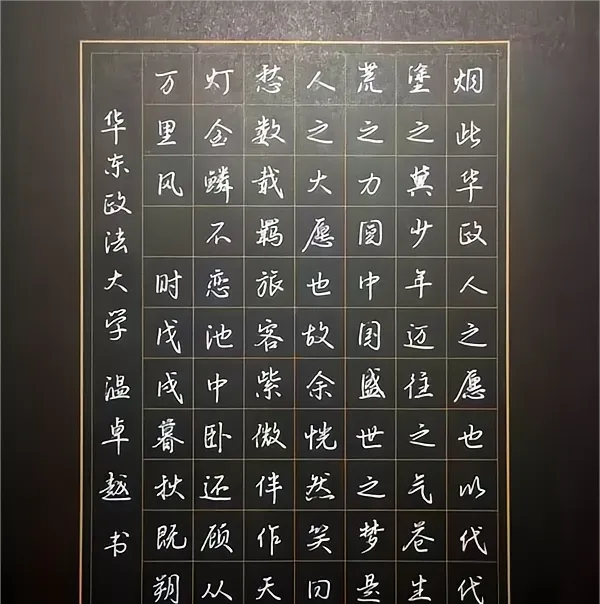 烟此华政人之愿也以代代
塗之冀少年迈往之气苍生
荒之力圆中国盛世之梦是
人之大愿也故余恍然笑曰
愁数载羁旅客紫微伴作天
灯金鳞不恋池中卧还顾从
万里风 时戊戌暮秋既朔
华东政法大学 温卓越 书